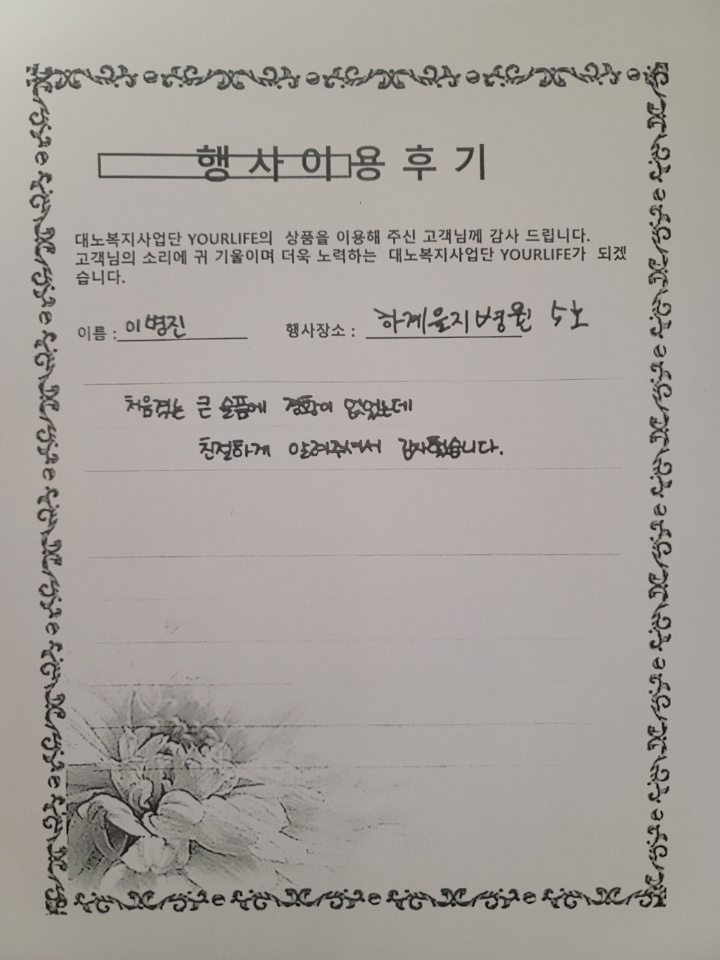 행사이용후기
대노복지사업단 YOURLIFE의 상품을 이용해 주신 고객님께 감사 드립니다.
고객님의 소리에 귀 기울이며 더욱 노력하는 대노복지사업단 YOURLIFE가 되겠
습니다.
이름 : 이병진 행사장소 : 하계을지병원 5호
처음겪는 큰 슬픔에 경황이 없었는데
친절하게 알려주셔서 감사했습니다.